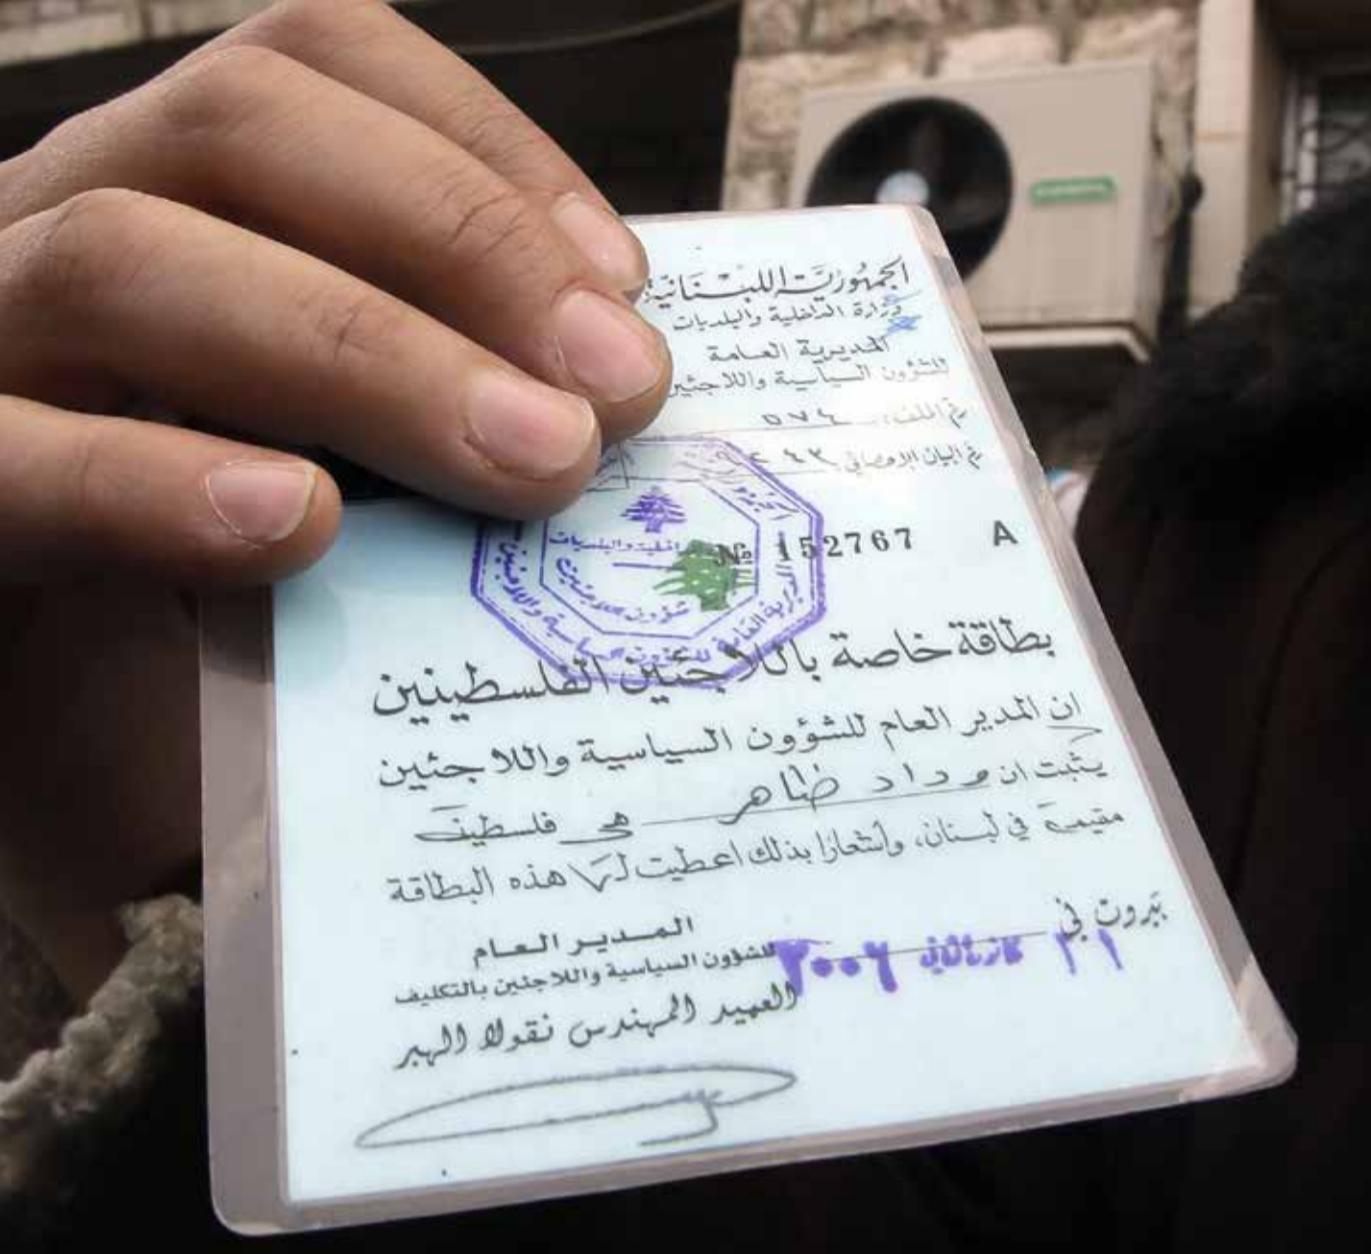 الجمهورية اللبنانية
وزارة الداخلية والبلديات
المديرية العامة
للشؤون السياسية واللاجئين
رقم الملف: ٥٧٤
رقم البيان الاحصائي
№ 152767 A
شؤون اللاجئين
بطاقة خاصة باللاجئين الفلسطينين
ان المدير العام للشؤون السياسية واللاجئين
يثبت ان وداد ظاهر هي فلسطينية
مقيمة في لبنان، وأشعارا بذلك اعطيت لها هذه البطاقة
بيروت في ٣١ كانون الثاني ٢٠٠٦
المدير العام
للشؤون السياسية واللاجئين بالتكليف
العميد المهندس نقولا الهبر